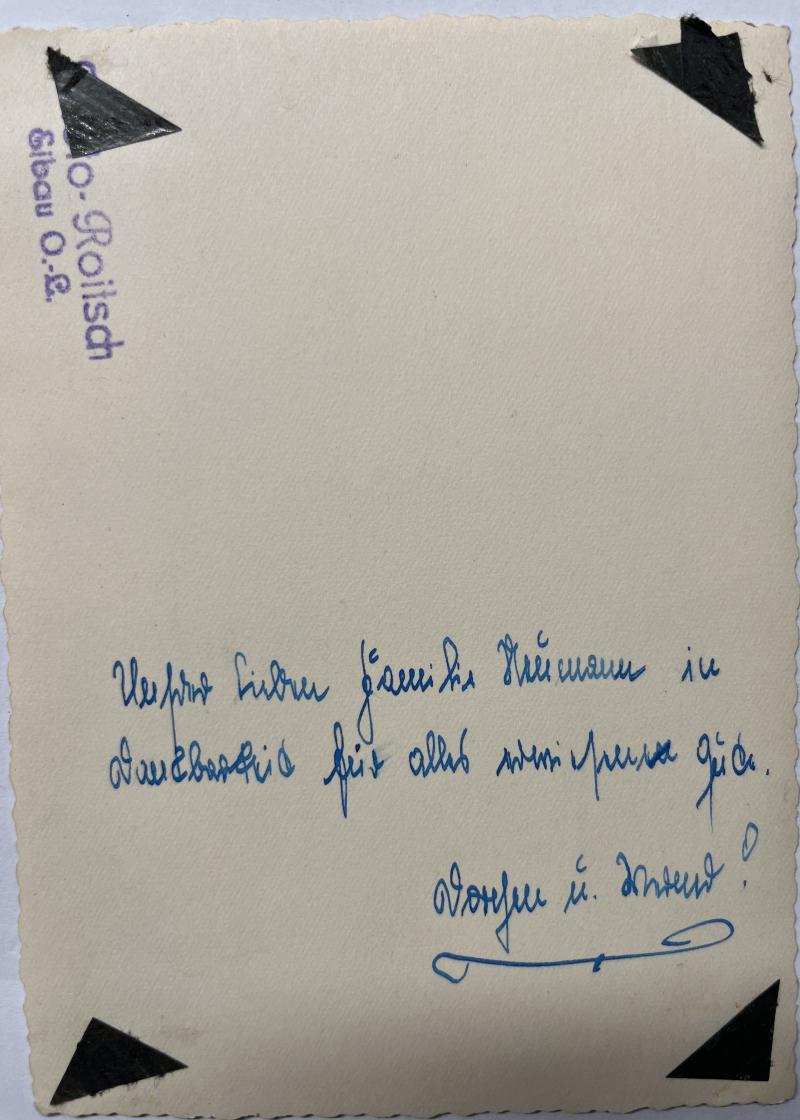 Roitsch
Eibau O.-L.
Unsrer lieben Familie Neumann in
Dankbarkeit für alles erwiesene Gute.
Dorchen u.